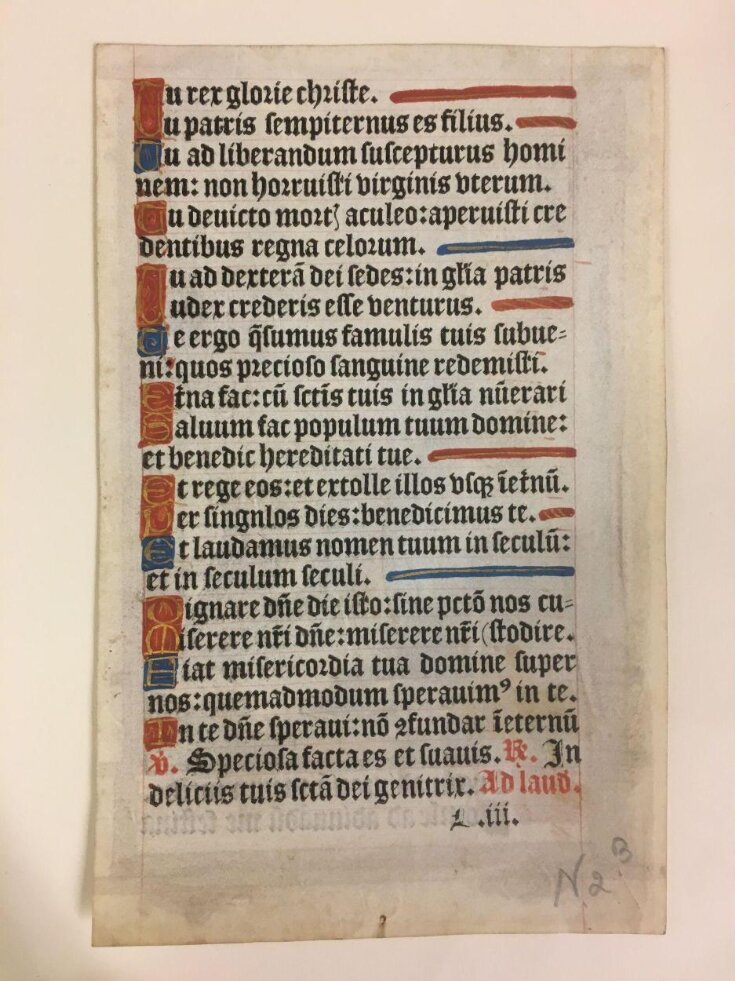 Tu rex glorie christe.
Tu patris sempiternus es filius.
Tu ad liberandum suscepturus homi
nem: non horruisti virginis vterum.
Tu deuicto mortꝭ aculeo: aperuisti cre
dentibus regna celorum.
Tu ad dexterā dei sedes: in gl̄ia patris
Iudex crederis esse venturus.
Te ergo q̄sumus famulis tuis subue=
ni: quos precioso sanguine redemisti.
Et̄na fac: cū sctīs tuis in gl̄ia nūerari
Saluum fac populum tuum domine:
et benedic hereditati tue.
Et rege eos: et extolle illos vsqꝫ īet̄nū.
Per singnlos dies: benedicimus te.
Et laudamus nomen tuum in seculū:
et in seculum seculi.
Dignare dn̄e die isto: sine pctō nos cu=
Miserere nr̄i dn̄e: miserere nr̄i (stodire.
Fiat misericordia tua domine super
nos: quemadmodum sperauimꝰ in te.
In te dn̄e speraui: nō ꝯfundar īeternū
V. Speciosa facta es et suauis. R. In
deliciis tuis sctā dei genitrix. Ad laud.
.iii.
N 2 3